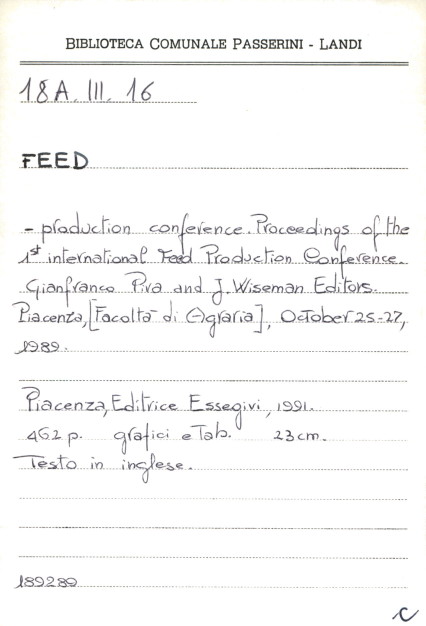 BIBLIOTECA COMUNALE PASSERINI - LANDI
18A. III. 16
FEED
- production conference. Proceedings of the
1st international Feed Production Conference.
Gianfranco Piva and J. Wiseman Editors.
Piacenza, [Facoltà di Agraria], October 25-27,
1989.
Piacenza, Editrice Essegivi, 1991.
462 p. grafici e Tab. 23 cm.
Testo in inglese.
189289
C